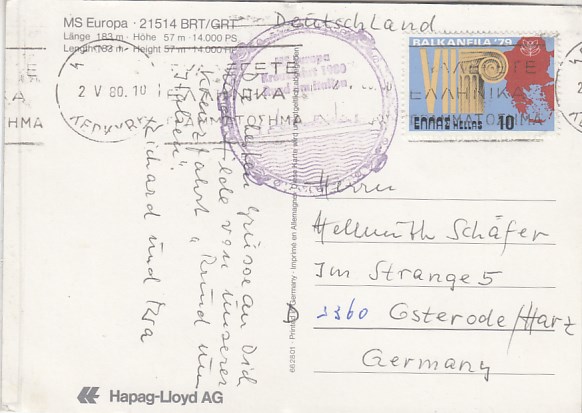 MS Europa · 21514 BRT/GRT
Länge 183 m · Höhe 57 m · 14.000 PS
Length 183 m · Height 57 m · 14.000
Deutschland
2 V 80. 10
ΚΕΡΚΥΡΑ
ΕΛΛΗΝΙΚΑ
BALKANFILA '79
ΕΛΛΑΣ HELLAS 10
grüsse an Dich
von unserer
Kreuzfahrt „Rund um
Italien".
Richard und
Herrn
Hellmuth Schäfer
Im Strange 5
3360 Osterode/Harz
Germany
662801 · Printed in Germany · Imprimé en Allemagne
Hapag-Lloyd AG